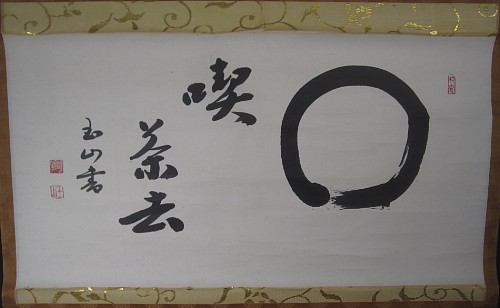 喫
茶去
玉山書